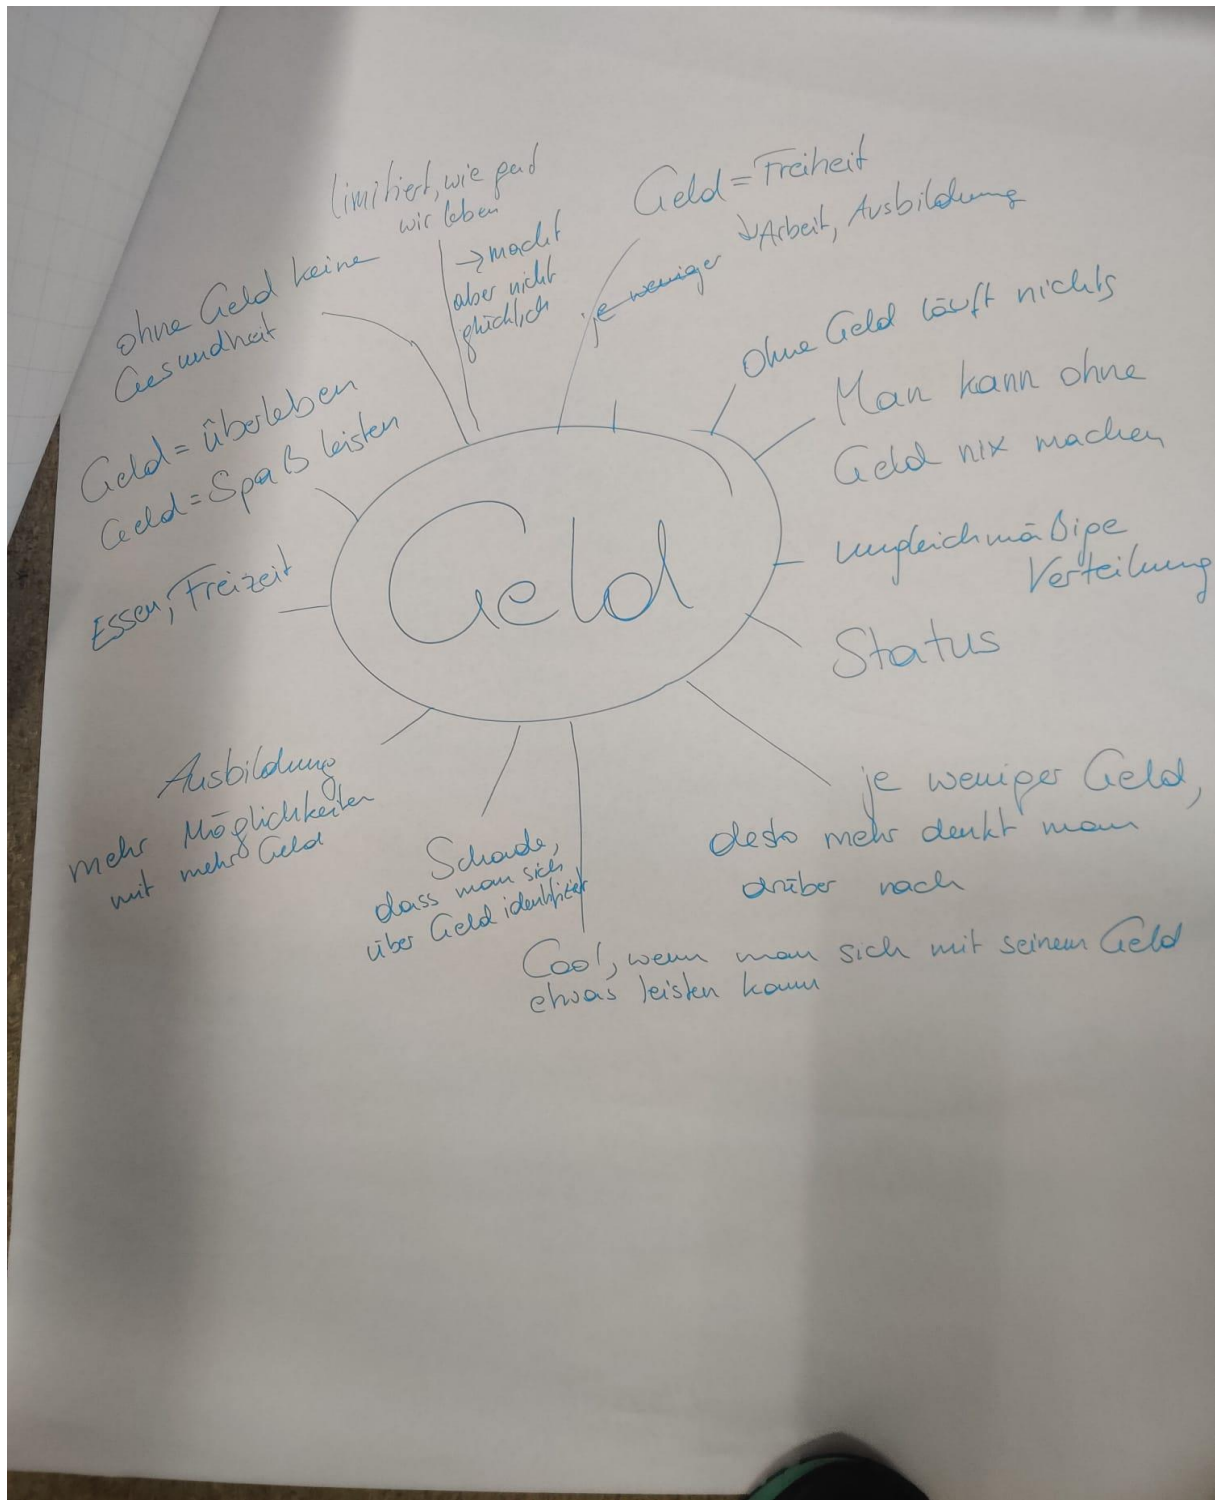 Geld
limitiert, wie gut
wir leben
→ macht
aber nicht
glücklich
Geld = Freiheit
↳ Arbeit, Ausbildung
je weniger
Ohne Geld läuft nichts
Man kann ohne
Geld nix machen
ungleichmäßige
Verteilung
Status
je weniger Geld,
desto mehr denkt man
drüber nach
Cool, wenn man sich mit seinem Geld
etwas leisten kann
Schade,
dass man sich
über Geld identifiziert
Ausbildung
mehr Möglichkeiten
mit mehr Geld
Essen, Freizeit
Geld = überleben
Geld = Spaß leisten
ohne Geld keine
Gesundheit